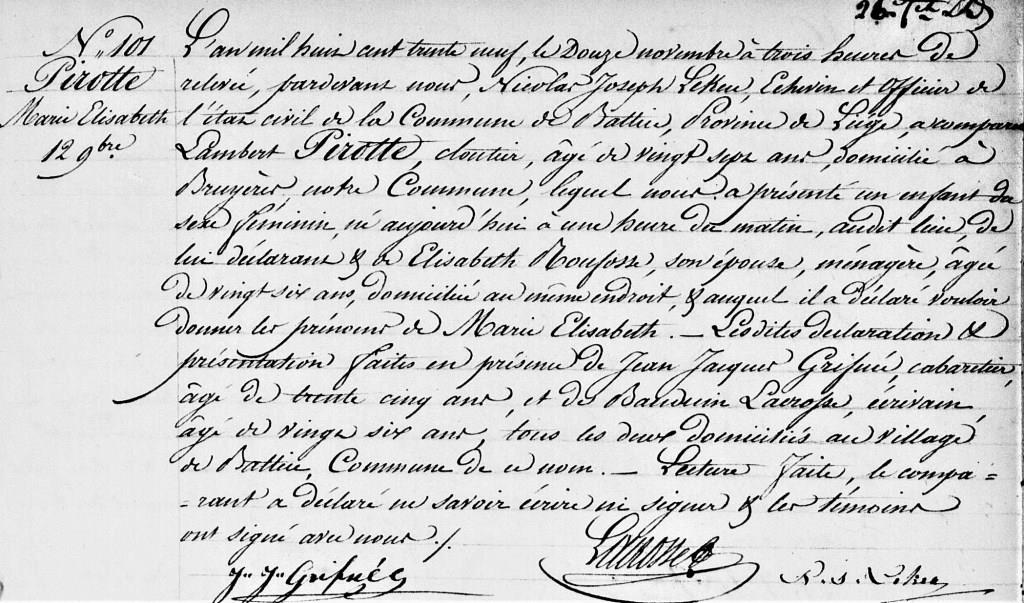 N.° 101
Pirotte
Marie Elisabeth
12 9bre
L'an mil huit cent trente neuf, le Douze novembre à trois heures de
relevé, pardevant nous, Nicolas Joseph Lekeu, Echevin et Officier de
l'état civil de la Commune de Battice, Province de Liège, a comparu
Lambert Pirotte, cloutier, âgé de vingt sept ans, domicilié à
Bruyères, notre Commune, lequel nous a présenté un enfant du
sexe féminin, né aujourd'hui à une heure du matin, audit lieu de
lui déclarant & de Elisabeth Roufosse, son épouse, ménagère, âgée
de vingt six ans, domiciliée au même endroit, & auquel il a déclaré vouloir
donner les prénoms de Marie Elisabeth. — Lesdites declaration &
présentation faites en présence de Jean Jacques Grifnée, cabaretier,
âgé de trente cinq ans, et de Baudouin Lacrosse, écrivain,
âgé de vingt six ans, tous les deux domiciliés au village
de Battice, Commune de ce nom. — Lecture faite, le compa=
=rant a déclaré ne savoir écrire ni signer & les témoins
ont signé avec nous ./.
J. J. Grifnée
Lacrosse
N. J. Lekeu